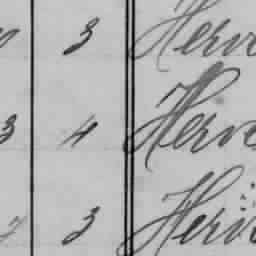 3 Herv
3 4 Herve
3 Herv